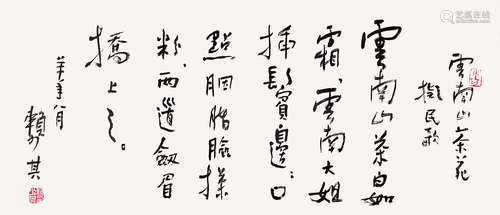 雲南山茶花
擬民歌
雲南山茶白如
霜、雲南大姐
插鬢邊、口
點胭脂臉搽
粉、两道劍眉
上
八月
賴少其